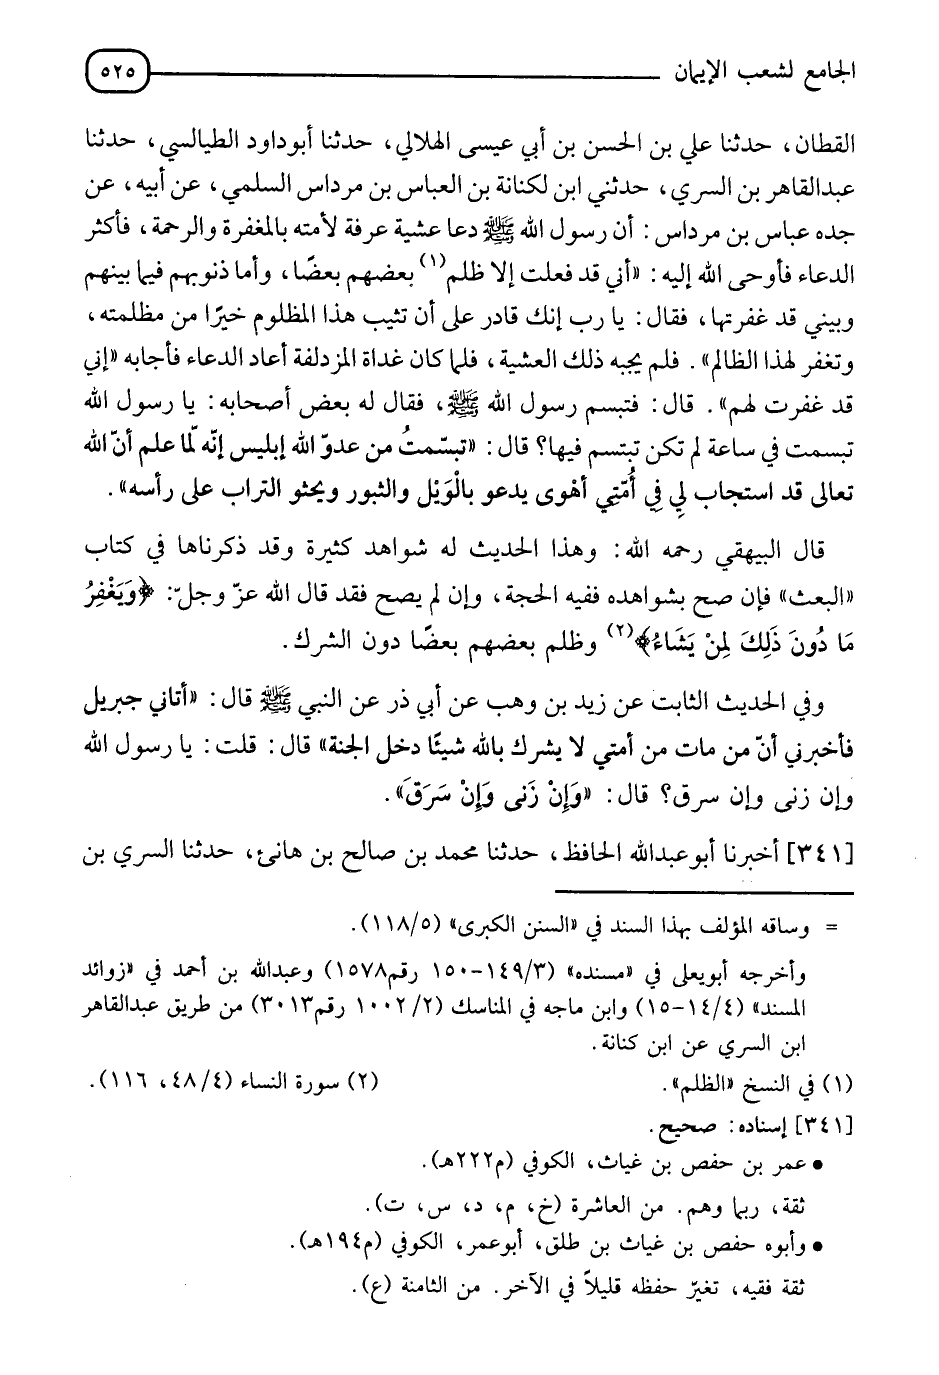 الجامع لشعب الإيمان ٥٢٥
القطان، حدثنا علي بن الحسن بن أبي عيسى الهلالي، حدثنا أبوداود الطيالسي، حدثنا
عبدالقاهر بن السري، حدثني ابن لكنانة بن العباس بن مرداس السلمي، عن أبيه، عن
جده عباس بن مرداس: أن رسول الله ﷺ دعا عشية عرفة لأمته بالمغفرة والرحمة، فأكثر
الدعاء فأوحى الله إليه: «أني قد فعلت إلا ظلم(١) بعضهم بعضًا، وأما ذنوبهم فيما بينهم
وبيني قد غفرتها، فقال: يا رب إنك قادر على أن تثيب هذا المظلوم خيرًا من مظلمته،
وتغفر لهذا الظالم». فلم يجبه ذلك العشية، فلما كان غداة المزدلفة أعاد الدعاء فأجابه «إني
قد غفرت لهم». قال: فتبسم رسول الله ﷺ، فقال له بعض أصحابه: يا رسول الله
تبسمت في ساعة لم تكن تبتسم فيها؟ قال: «تبسّمتُ من عدوّ الله إبليس إنّه لمّا علم أنّ الله
تعالى قد استجاب لِي فِي أُمّتِي أهْوى يدعو بالْوَيْل والثبور ويحثو التراب على رأسه».
قال البيهقي رحمه الله: وهذا الحديث له شواهد كثيرة وقد ذكرناها في كتاب
«البعث» فإن صح بشواهده ففيه الحجة، وإن لم يصح فقد قال الله عزّ وجلّ: ﴿وَيَغْفِرُ
مَا دُونَ ذَلِكَ لِمَنْ يَشَاءُ﴾(٢) وظلم بعضهم بعضًا دون الشرك.
وفي الحديث الثابت عن زيد بن وهب عن أبي ذر عن النبي ﷺ قال: «أتاني جبريل
فأخبرني أنّ من مات من أمتي لا يشرك بالله شيئًا دخل الجنة» قال: قلت: يا رسول الله
وإن زنى وإن سرق؟ قال: «وَإِنْ زَنى وَإِنْ سَرَقَ».
[٣٤١] أخبرنا أبوعبدالله الحافظ، حدثنا محمد بن صالح بن هانئ، حدثنا السري بن
= وساقه المؤلف بهذا السند في «السنن الكبرى» (١١٨/٥).
وأخرجه أبويعلى في «مسنده» (١٤٩/٣-١٥٠ رقم١٥٧٨) وعبدالله بن أحمد في «زوائد
المسند» (١٤/٤-١٥) وابن ماجه في المناسك (١٠٠٢/٢ رقم٣٠١٣) من طريق عبدالقاهر
ابن السري عن ابن كنانة.
(١) في النسخ «الظلم». (٢) سورة النساء (٤٨/٤، ١١٦).
[٣٤١] إسناده: صحيح.
• عمر بن حفص بن غياث، الكوفي (م٢٢٢هـ).
ثقة، ربما وهم. من العاشرة (خ، م، د، س، ت).
• وأبوه حفص بن غياث بن طلق، أبوعمر، الكوفي (م١٩٤هـ).
ثقة فقيه، تغيّر حفظه قليلاً في الآخر. من الثامنة (ع).